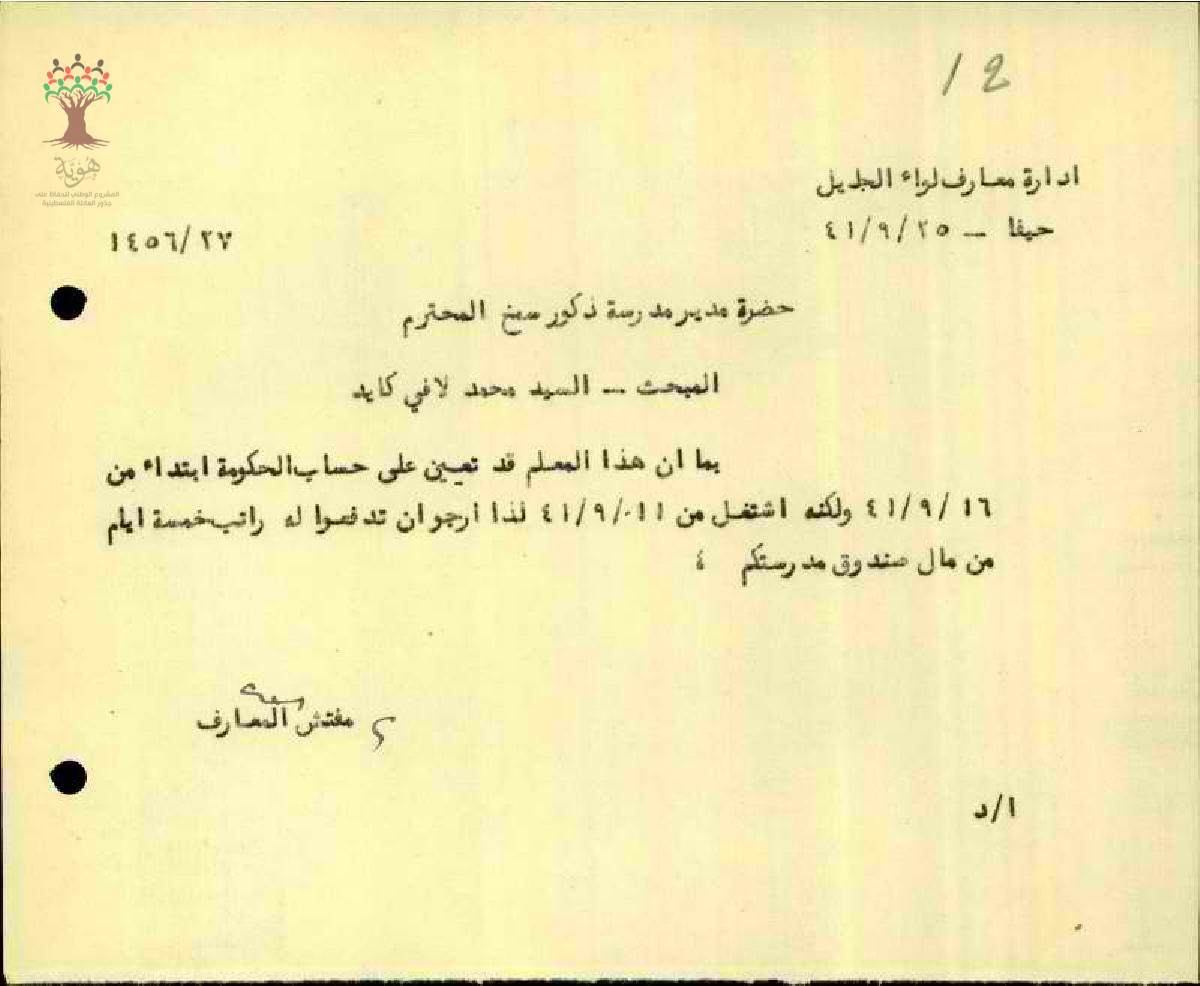 12
هوية
المشروع الوطني للحفاظ على
جذور العائلة الفلسطينية
ادارة معارف لواء الجليل
حيفا – ٤١/٩/٢٥
١٤٥٦/٢٧
حضرة مدير مدرسة ذكور سمخ المحترم
المبحث – السيد محمد لافي كايد
بما ان هذا المعلم قد تعين على حساب الحكومة ابتداء من
٤١/٩/١٦ ولكنه اشتغل من ٤١/٩/٠١١ لذا ارجو ان تدفعوا له راتب خمسة ايام
من مال صندوق مدرستكم ٤
مفتش المعارف
ا/د